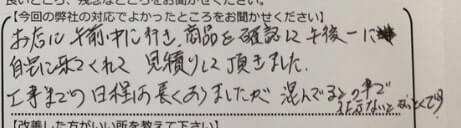 良いところ、残念なところをお聞かせください。
【今回の弊社の対応でよかったところをお聞かせください】
お店に午前中に行き、商品を確認して午後一に
自宅に来てくれて 見積りして頂きました。
工事までの日程は長くありましたが 混んでるとの事で
仕方ないとなっとくです
【改善した方がいい所を教えて下さい】